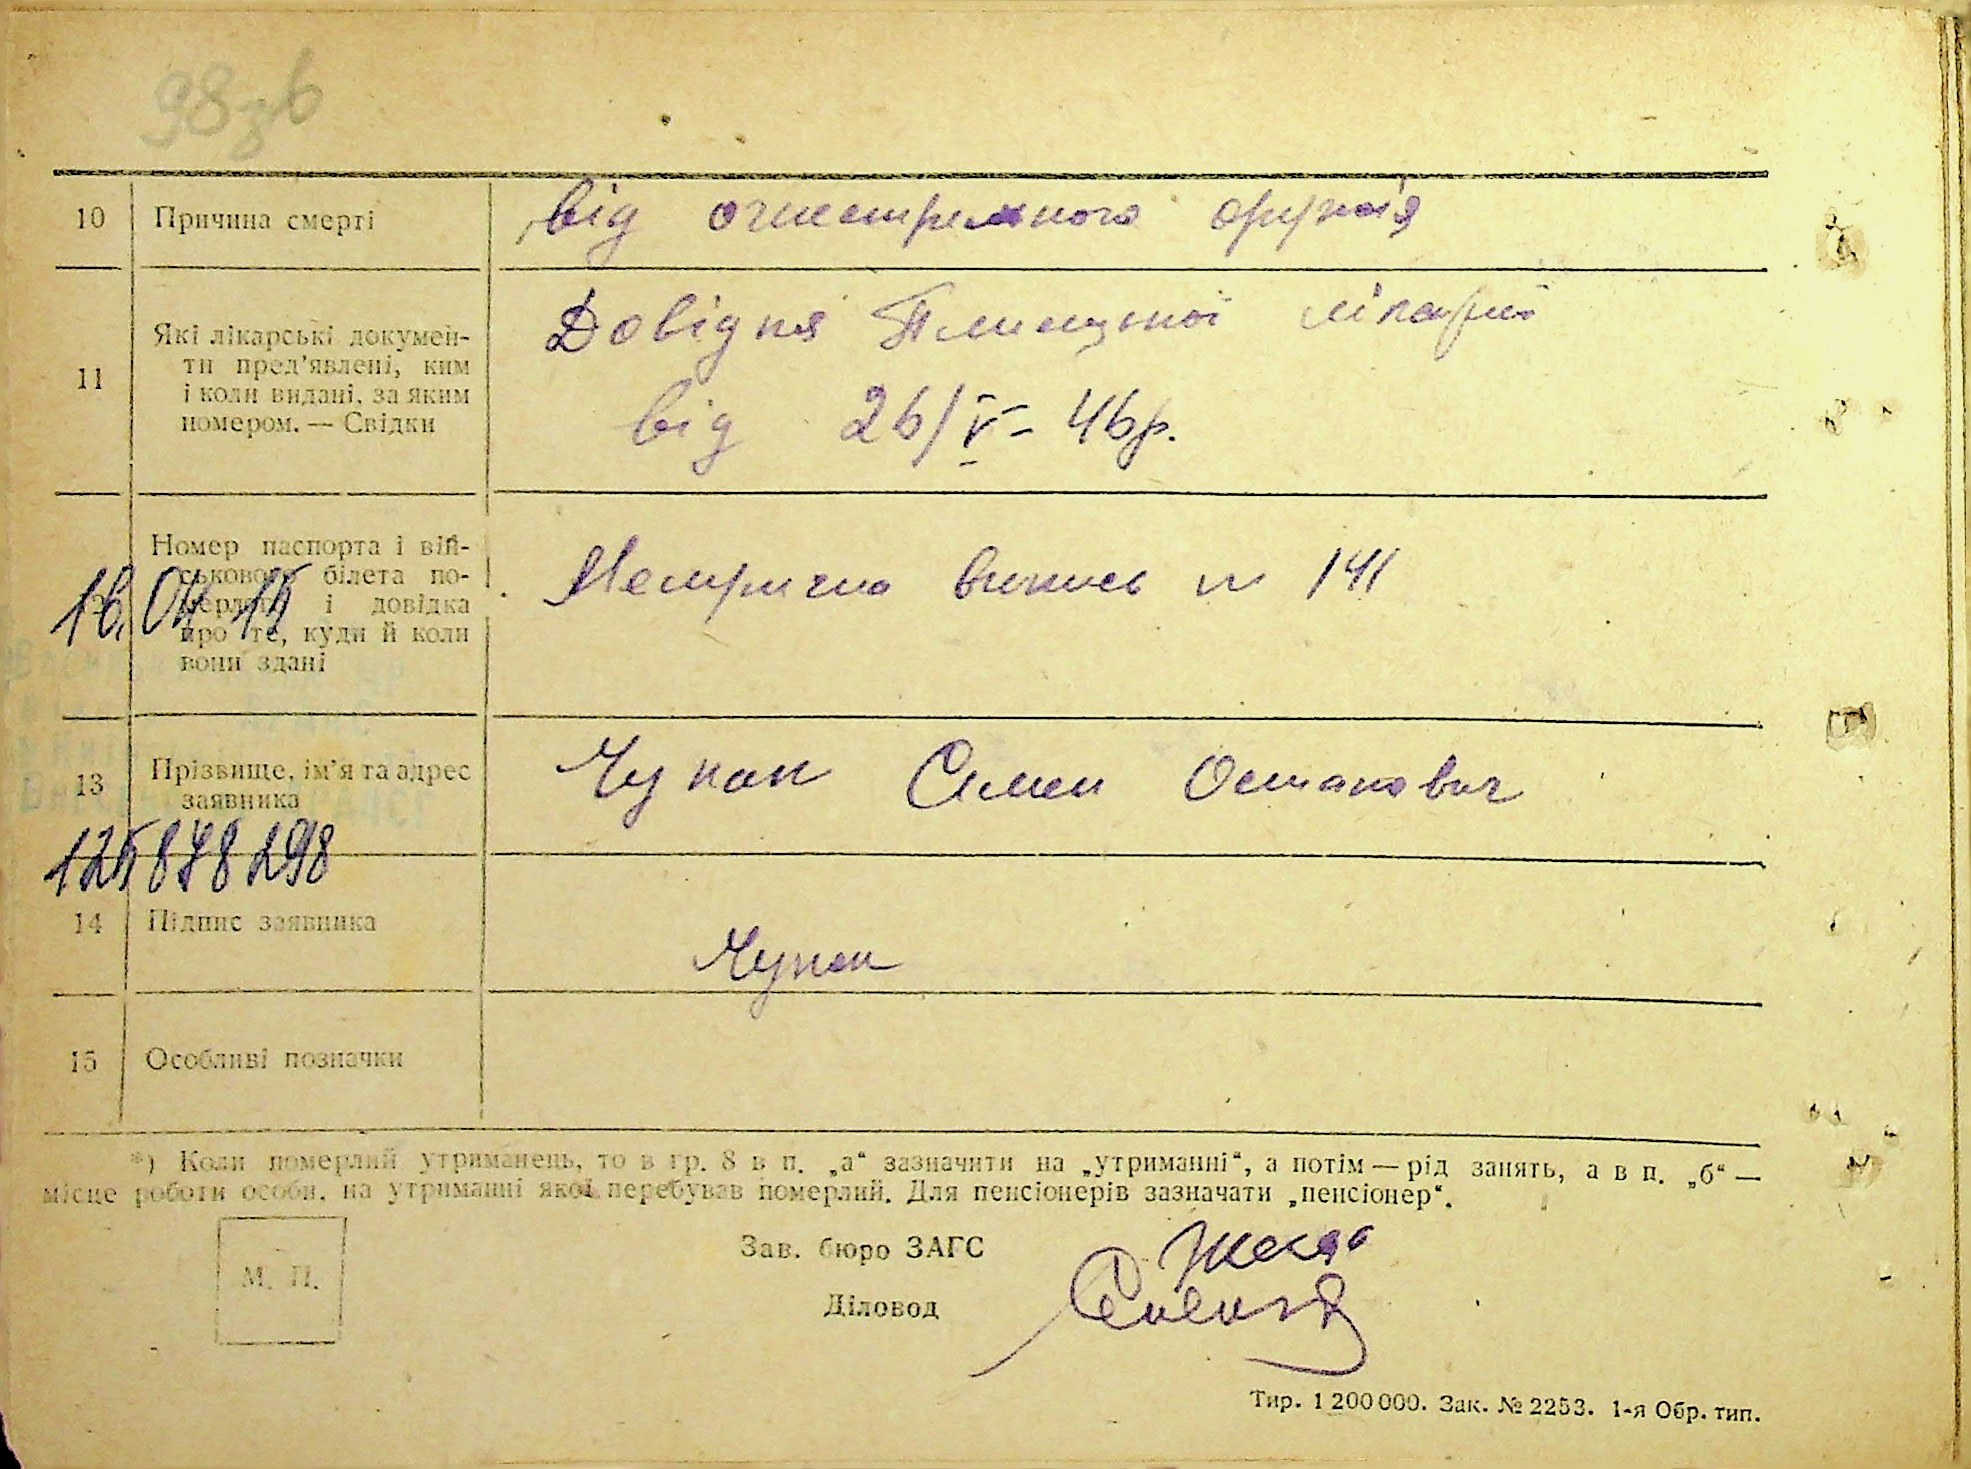 98зв
10 Причина смерті від огнестрельного оружія
11 Які лікарські докумен-
ти пред'явлені, ким
і коли видані, за яким
номером. — Свідки
Довідка лікарні
від 26/V - 46р.
Номер паспорта і вій-
ськового білета по-
мерлого і довідка
про те, куди й коли
вони здані
Метрична випись № 141
16.04 15
13 Прізвище, ім'я та адрес
заявника
Чупак Семен Остапович
125 878 298
14 Підпис заявника
Чупак
15 Особливі позначки
*) Коли померлий утриманець, то в гр. 8 в п. „а“ зазначити на „утриманні“, а потім — рід занять, а в п. „б“ —
місце роботи особи, на утриманні якої перебував померлий. Для пенсіонерів зазначати „пенсіонер“.
М. П.
Зав. бюро ЗАГС
Діловод
Тир. 1 200 000. Зак. № 2253. 1-я Обр. тип.